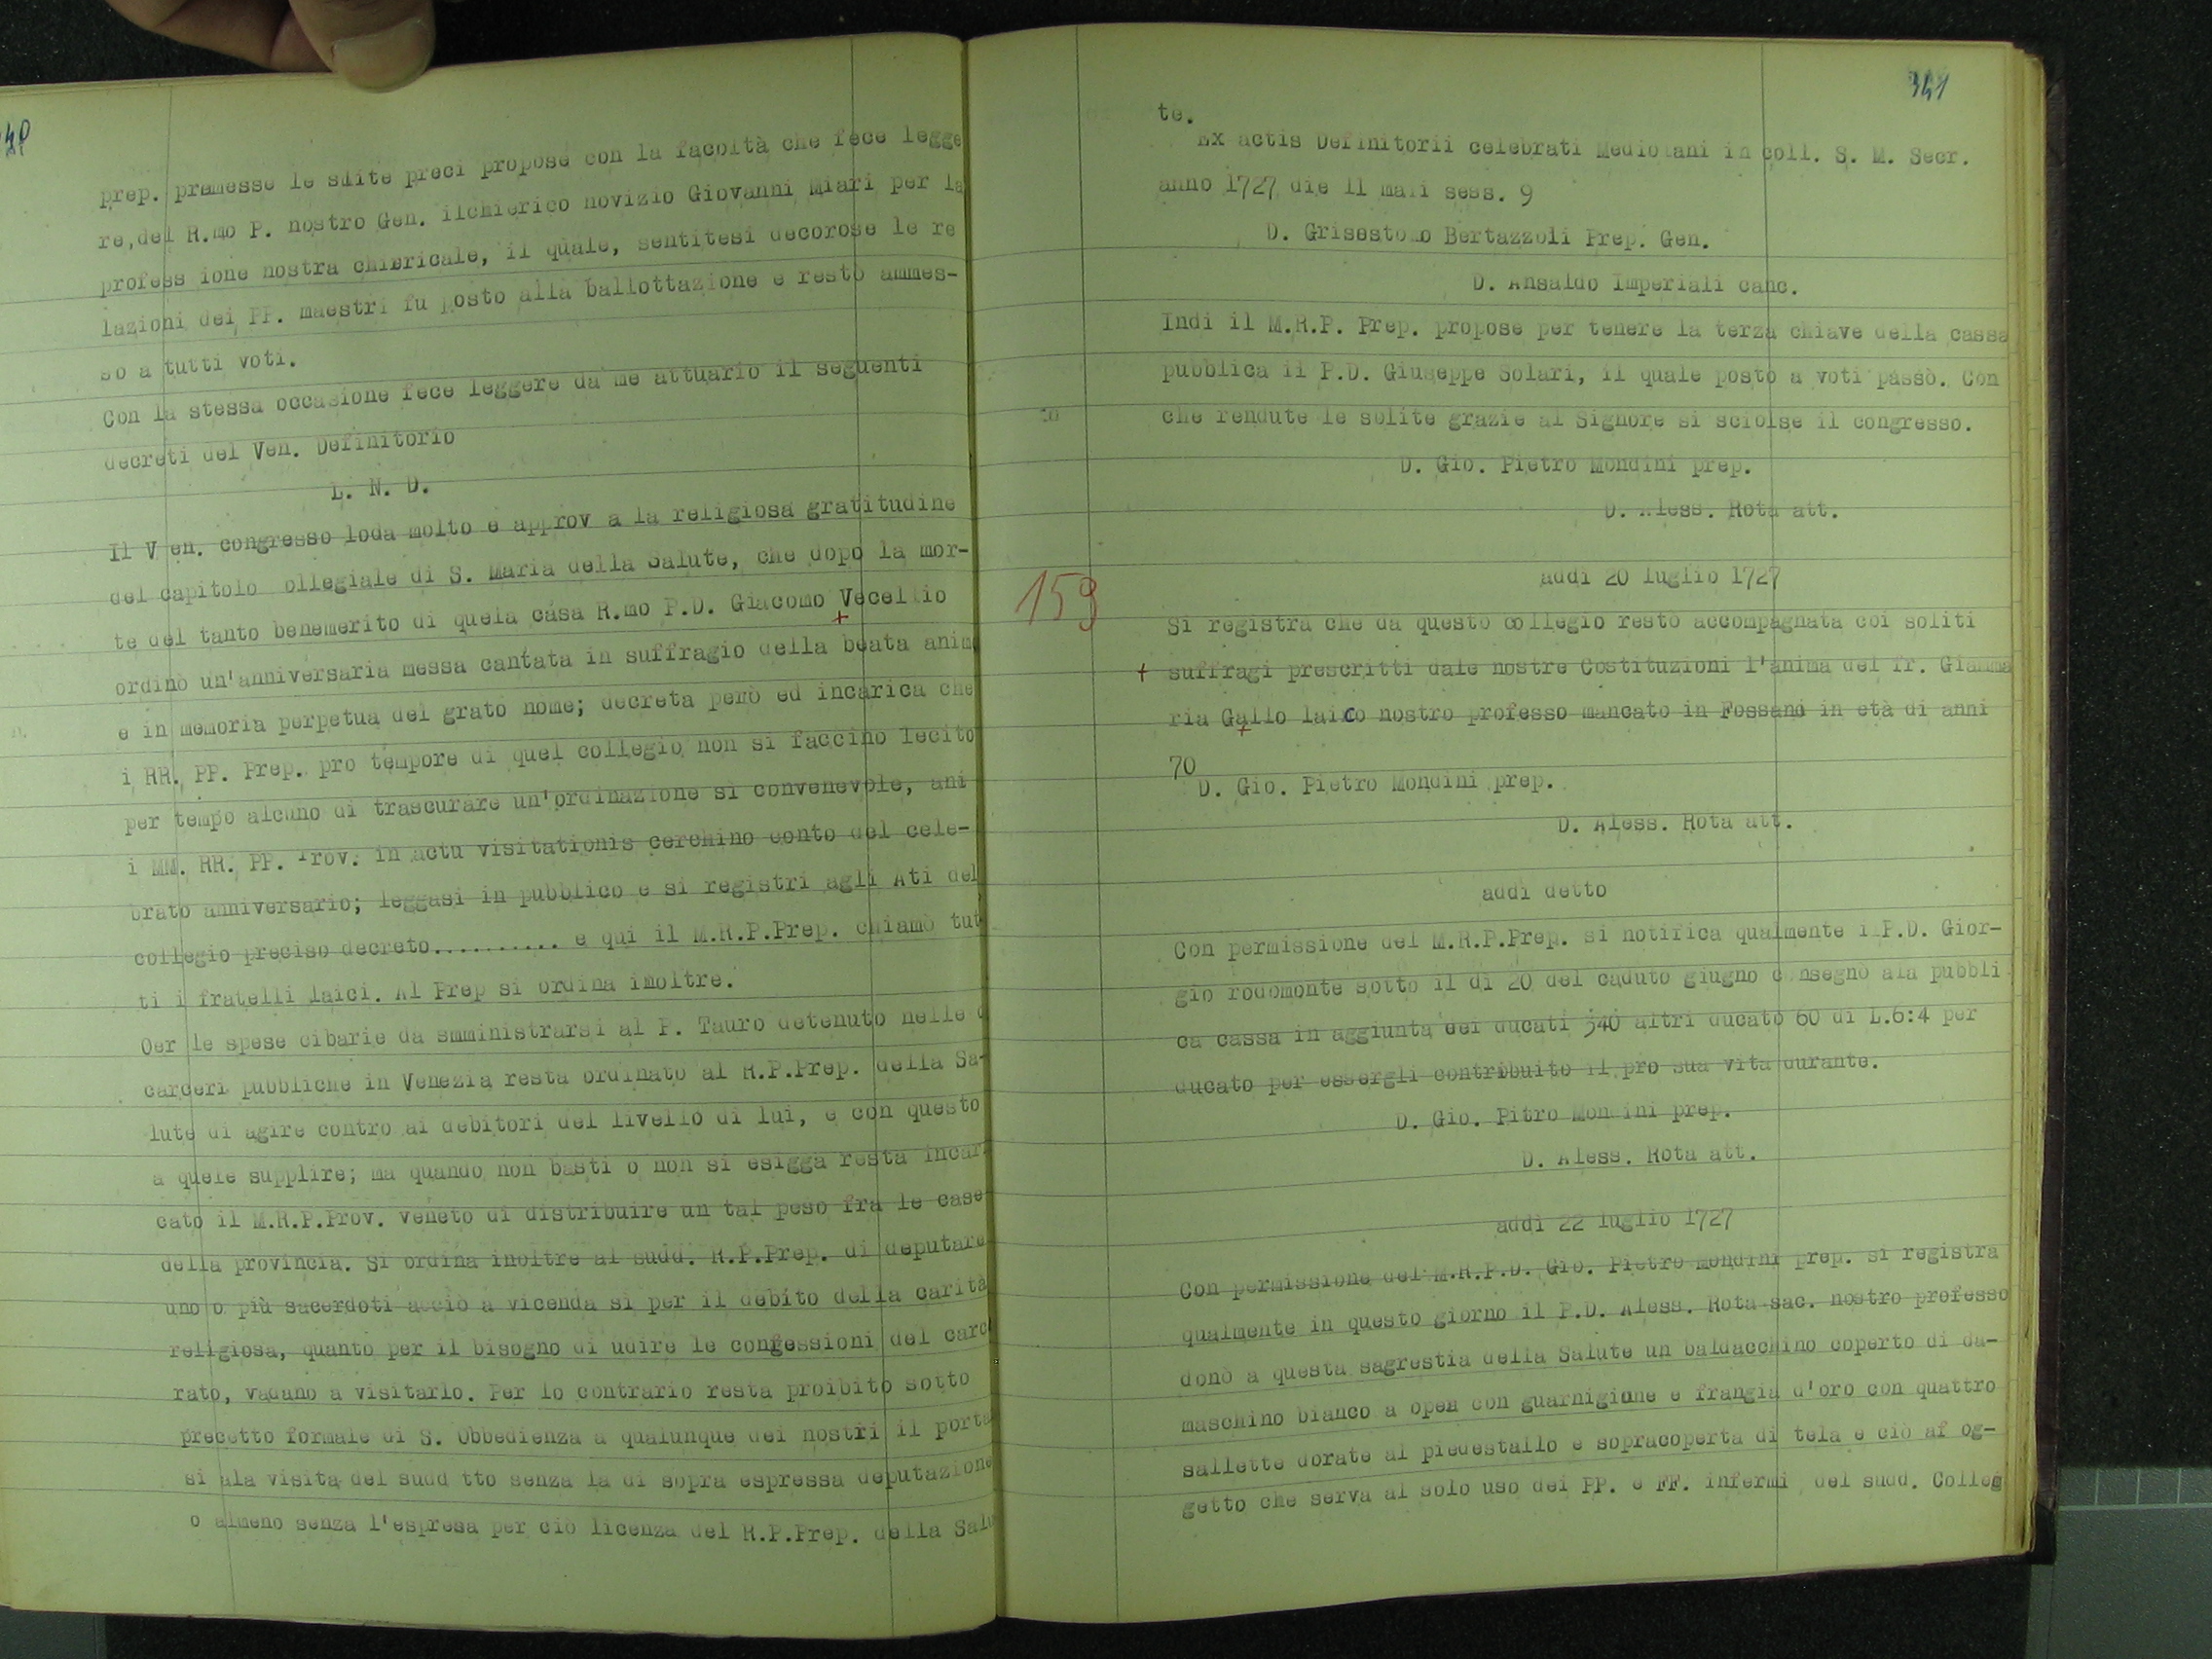 340
prep. premesse le slite preci propose con la facoltà che fece legge
re,del R.mo P. nostro Gen. ilchierico novizio Giovanni Miari per la
profess ione nostra chiericale, il quale, sentitesi decorose le re
lazioni dei PP. maestri fu posto alla ballottazione e restò ammes-
so a tutti voti.
Con la stessa occasione fece leggere da me attuario il seguenti
decreti del Ven. Definitorio
L. N. D.
Il V en. congresso loda molto e approv a la religiosa gratitudine
del capitolo ollegiale di S. Maria della Salute, che dopo la mor-
te del tanto benemerito di quela casa R.mo P.D. Giacomo Vecellio
+
ordinò un'anniversaria messa cantata in suffragio della beata anim
e in memoria perpetua del grato nome; decreta però ed incarica che
i RR. PP. Prep. pro tempore di quel collegio non si faccino lecito
per tempo alcuno di trascurare un'ordinazione sì convenevole, ani
i MM. RR. PP. Prov. in actu visitationis cerchino conto del cele-
brato anniversario; leggasi in pubblico e si registri agli Ati del
collegio preciso decreto.......... e qui il M.R.P.Prep. chiamò tut
ti i fratelli laici. Al Prep si ordina imoltre.
Oer le spese cibarie da smministrarsi al P. Tauro detenuto nelle c
carceri pubbliche in Venezia resta ordinato al R.P.Prep. della Sa-
lute di agire contro ai debitori del livello di lui, e con questo
a quele supplire; ma quando non basti o non si esigga resta incari
cato il M.R.P.Prov. veneto di distribuire un tal peso fra le case
della provincia. Si ordina inoltre al sudd. R.P.Prep. di deputare
uno o più sacerdoti acciò a vicenda sì per il debito della carità
religiosa, quanto per il bisogno di udire le confessioni del carc
rato, vadano a visitarlo. Per lo contrario resta proibito sotto
precetto formale di S. Obbedienza a qualunque dei nostri il porta
si ala visita del sudd tto senza la di sopra espressa deputazione
o almeno senza l'espresa per ciò licenza del R.P.Prep. della Salu
341
te.
Ex actis Definitorii celebrati Mediolani in coll. S. M. Secr.
anno 1727 die 11 maii sess. 9
D. Grisostomo Bertazzoli Prep. Gen.
D. Ansaldo Imperiali canc.
Indi il M.R.P. Prep. propose per tenere la terza chiave della cassa
pubblica il P.D. Giuseppe Solari, il quale posto a voti passò. Con
che rendute le solite grazie al Signore si sciolse il congresso.
D. Gio. Pietro Mondini prep.
D. Aless. Rota att.
159
addì 20 luglio 1727
Si registra che da questo collegio restò accompagnata coi soliti
+ suffragi prescritti dale nostre Costituzioni l'anima del fr. Giamma
ria Gallo laico nostro professo mancato in Fossano in età di anni
+
70
D. Gio. Pietro Mondini prep.
D. Aless. Rota att.
addì detto
Con permissione del M.R.P.Prep. si notifica qualmente i P.D. Gior-
gio rodomonte sotto il dì 20 del caduto giugno c nsegnò ala pubbli
ca cassa in aggiunta dei ducati 340 altri ducato 60 di L.6:4 per
ducato per essergli contribuito il pro sua vita durante.
D. Gio. Pitro Mondini prep.
D. Aless. Rota att.
addì 22 luglio 1727
Con permissione del M.R.P.D. Gio. Pietro Mondini prep. si registra
qualmente in questo giorno il P.D. Aless. Rota sac. nostro professo
donò a questa sagrestia della Salute un baldacchino coperto di da-
maschino bianco a opea con guarnigione e frangia d'oro con quattro
sallette dorate al piedestallo e sopracoperta di tela e ciò af og-
getto che serva al solo uso dei PP. e FF. infermi del sudd. Colleg